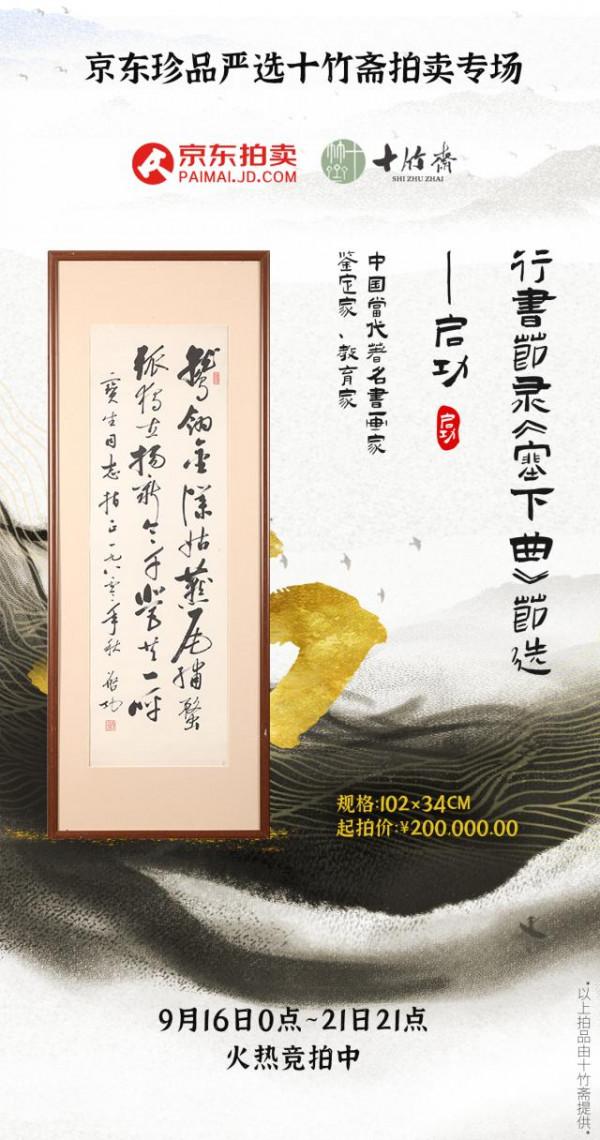 京东珍品严选十竹斋拍卖专场
京东拍卖
PAIMAI.JD.COM
十竹斋
十竹齋
SHI ZHU ZHAI
行書節录《塞下曲》節选
——启功
启功
中国當代著名書画家
鉴定家、教育家
鷲翎金僕姑燕尾繡蝥
弧獨立揚新令千營共一呼
寶生同志指正一九八零年秋 啟功
规格:102×34CM
起拍价:¥200.000.00
9月16日0点~21日21点
火热竞拍中
•以上拍品由十竹斋提供•